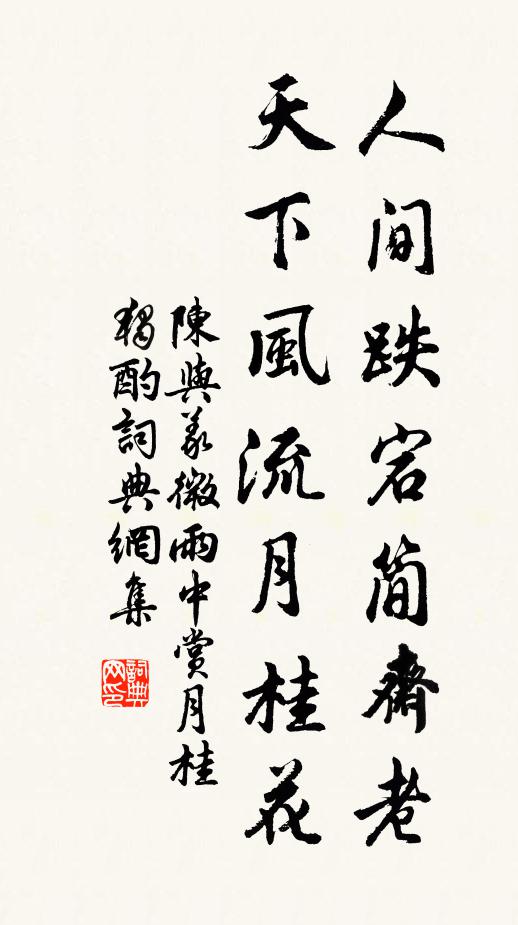 人間跌宕簡齋老
天下風流月桂花
陳與義微雨中賞月桂
獨酌詞典網集
詞典网印